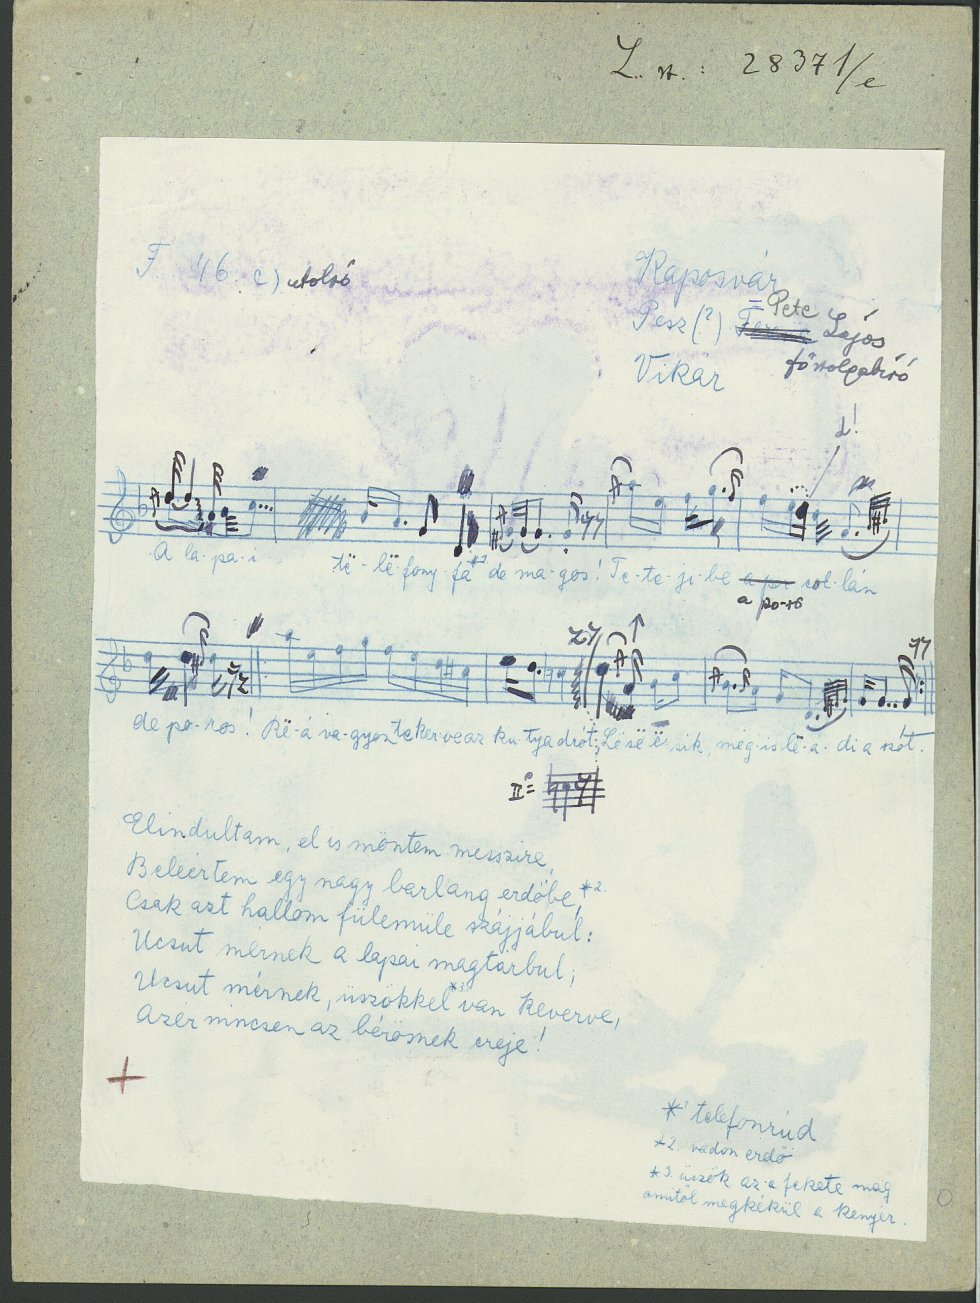 L. sz.: 28371/e
F 46. c) utolsó
Kaposvár
Pete
Pesz (?) Lajos
főszolgabíró
Vikar
A la-pa-i të-lë-fony-fa *1 de ma-gos! Te-te-ji-be a po-ro szol-lán
a po-ro
de po-ros! Rë-á va-gyon tekerve az ku-tyadrót; Le-së ë sik, mëg-is lë-a-di a szót.
II=
Elindultam, el is möntem messzire,
Beleértem egy nagy barlang erdőbe, *2.
Csak azt hallom fülemüle szájjábul:
Ucsut mérnek a lapai magtárbul,
Ucsut mérnek, üszökkel *3 van keverve,
Azér nincsen az bérösnek ereje!
*1 telefonrúd
*2. vadon erdő
*3 üszök az a fekete mag
amitől megkékül a kenyér.